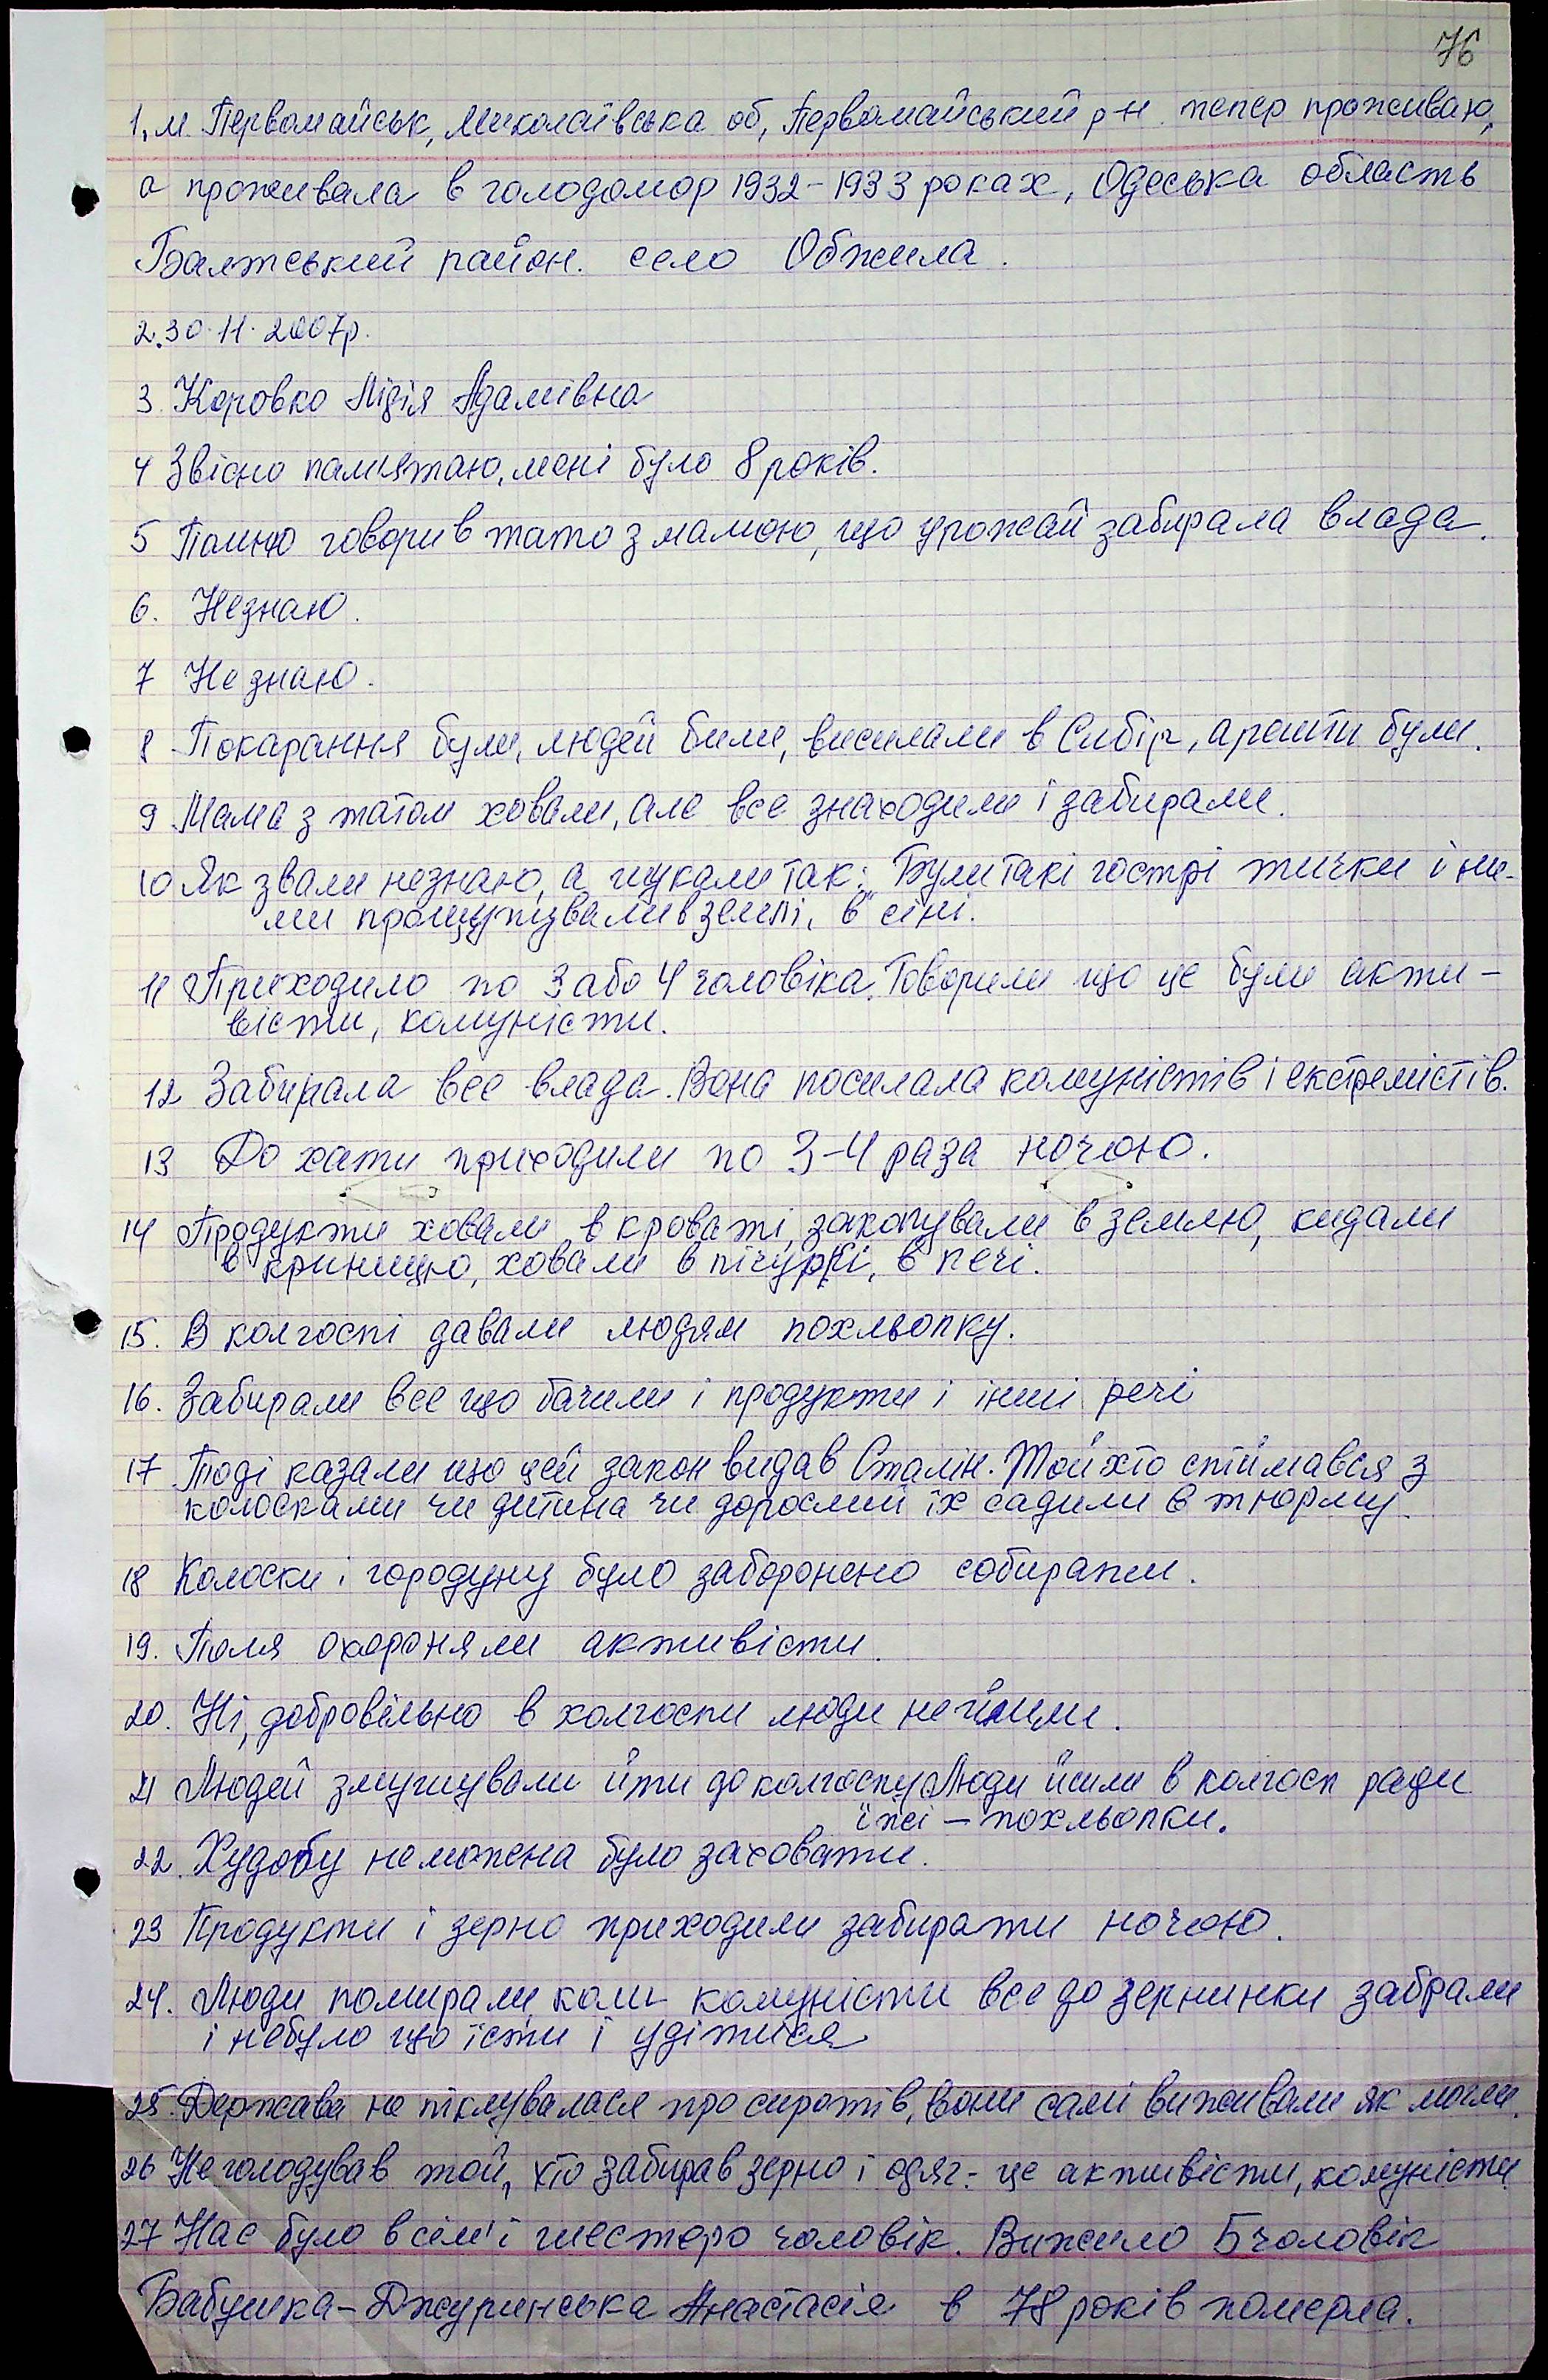 76
1. м. Первомайськ, Миколаївська об, Первомайський р-н тепер проживаю,
а проживала в голодомор 1932-1933 роках, Одеська область
Балтський район. село Обжила.
2. 30.11.2007р.
3. Коровко Лідія Адамівна
4 Звісно памятаю, мені було 8 років.
5 Помню говорив тато з мамою, що урожай забирала влада.
6. Незнаю.
7 Не знаю.
8 Покарання були, людей били, висилали в Сибір, арешти були.
9 Мама з татом ховали, але все знаходили і забирали.
10 Як звали незнаю, а шукали так: Були такі гострі тички і ни-
ми прощупували в землі, в сіні.
11 Приходило по 3 або 4 чоловіка. Говорили що це були акти-
вісти, комуністи.
12 Забирала все влада. Вона посилала комуністів і екстремістів.
13 До хати приходили по 3-4 раза ночою.
14 Продукти ховали в кроваті, закопували в землю, кидали
в криницю, ховали в пічурці, в печі.
15. В колгоспі давали людям похльопку.
16. Забирали все що бачили і продукти і інші речі
17 Тоді казали що цей закон видав Сталін. Той хто спіймався з
колосками чи дитина чи дорослий їх садили в тюрму.
18 Колоски і городину було заборонено собирати.
19. Поля охороняли активісти.
20. Ні, добровільно в колгоспи люди не йшли.
21 Людей змушували йти до колгоспу. Люди йшли в колгосп ради
їжі - похльопки.
22. Худобу неможена було заховати.
23 Продукти і зерно приходили забирати ночою.
24. Люди помирали, коли комуністи все до зернинки забрали
і небуло що їсти і удітися
25. Держава не піклувалася про сиротів, вони самі виживали як могли.
26 Не голодував той, хто забирав зерно і одяг - це активісти, комуністи.
27 Нас було в сім'ї шестеро чоловік. Вижило 5 чоловік
Бабушка - Джуринська Анастасія в 78 років померла.